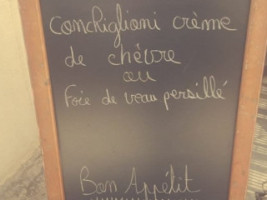 Conchiglioni crème
de chèvre
ou
Foie de veau persillé
Bon Appétit